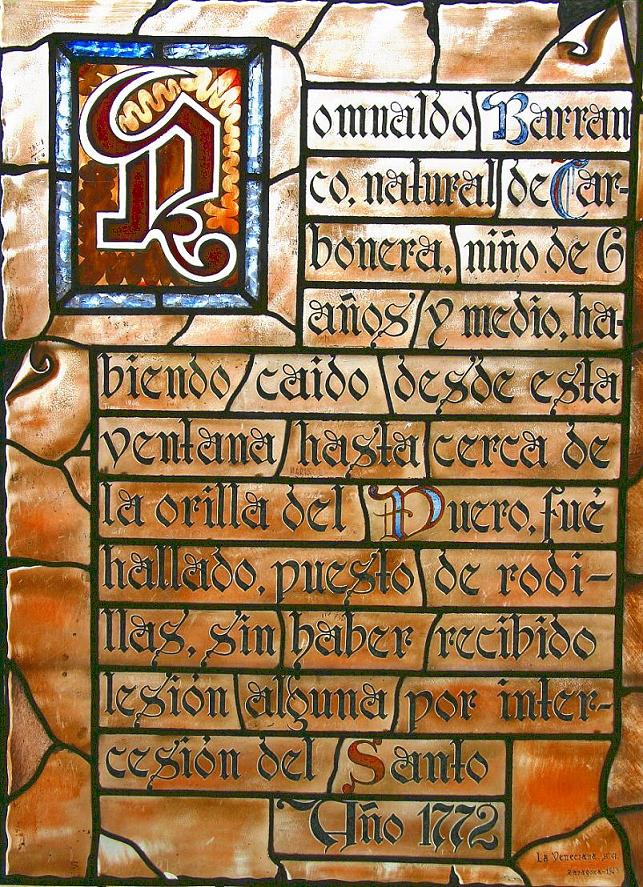 Romualdo Barran
co, natural de Car-
bonera, niño de 6
años y medio, ha-
biendo caido desde esta
ventana hasta cerca de
la orilla del Duero, fué
hallado, puesto de rodi-
llas, sin haber recibido
lesión alguna por inter-
cesión del Santo
Año 1772
La Veneciana
Zaragoza